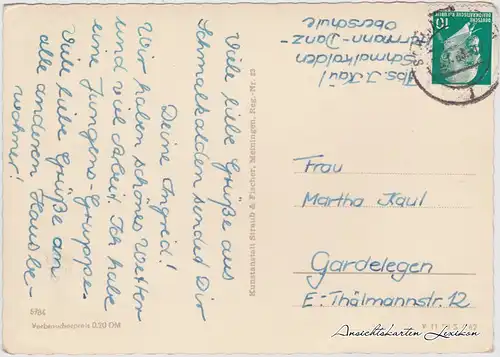 Viele liebe Grüße aus
Schmalkalden sendet Dir
Deine Ingrid!
Wir haben schönes Wetter
und viel Arbeit. Ich habe
eine Jungens-Gruppe.
Viele liebe Grüße an
alle anderen Hausbe-
wohner!
6984
Verbraucherpreis 0,20 DM
Kunstanstalt Straub & Fischer, Meiningen, Reg.-Nr. 23
Abs. I. Kaul
Schmalkalden
Hermann-Danz-
oberschule
10
DEUTSCHE
DEMOKRATISCHE REPUBLIK
Frau
Martha Kaul
Gardelegen
E.-Thälmannstr. 12
Ansichtskarten Lexikon